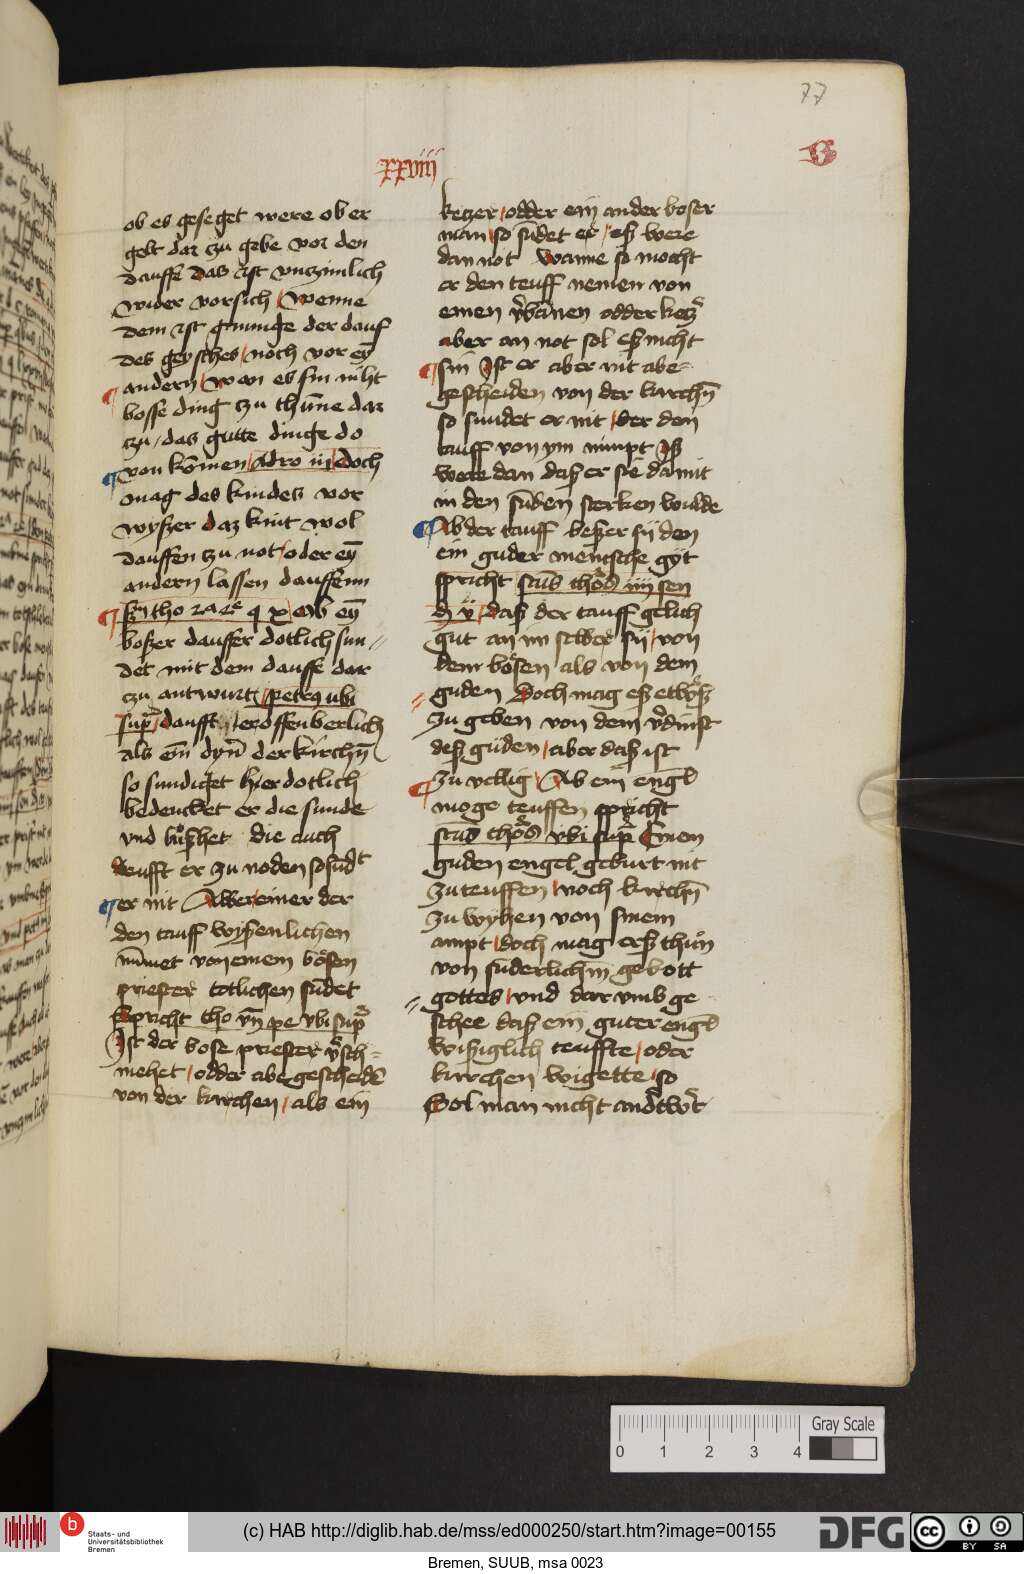 77
B
xxviiij
ob es geseget were ob er
gelt dar zu gebe vor den
dauffe das ist vnczimlich
wider vorsich wenne
dem ist gnunge der dauf
des geysches noch vor eȳ
andern wen es sin niht
bosse ding zu thūne dar
zu das gutte dinge do
von komen Adro iij doch
mag des kindes vor
wyßer daz kint wol
dauffen zu not oder eȳ
andern lassen dauffenn
qͥ x Ob eȳ
boßer dauffer dotlich sun
det mit dem dauffe dar
zu antwurt petrꝰ ubi
supͣ daufft er offenberlich
als ein dyn̄ der kirchn̄
so sundiget hier dotlich
bedeuchet er die sunde
vnd die auch
deufft er zu noden so sūdt
er nit Aber einer der
den tauff wyßenlichen
nīmet von einem bösen
priester totlichen sūdet
Spricht tho vn̄ pe vbi supͣ
Ist der bose priester v̄sch
mehet odder abegescheidē
von der kirchen als ein
ketzer odder ein ander boser
man so sūdet er eß were
dan not wanne so mocht
er den teuff nemen von
einen odder ketz̄
aber an not sol eß nicht
sin Ist er aber nit abe
gescheiden von der kirchn̄
so sundet er nit der den
tauff von ym nimpt Iß
were dan daß er sie damit
in den sūden sterken wulde
Ab der tauff beßer sij den
ein guder mentsche gyt
spricht sctūs thos iiij sen
d v daß der tauff gelich
gut an im selber sij von
dem bösen als von dem
guden Doch mag eß etwz̄
zu geben von dem v̄dinst
deß guden aber daß ist
zu vellig Ab ein engl̄
moge teuffen spricht
sctūs thos vbi supͣ Einem
guden engel geburt nit
zu teuffen noch kirchn̄
zu wyhen von sinem
ampt doch mag erß thun
von sūderlichm̄ gebott
gottes vnd dar vmb ge
schee daß ein guter engl̄
wißiglich teuffte oder
kirchen wigette so
Sol man nicht andtw̄t
0 1 2 3 4
Gray Scale
b Staats- und
Universitätsbibliothek
Bremen
(c) HAB http://diglib.hab.de/mss/ed000250/start.htm?image=00155
DFG
cc BY SA
Bremen, SUUB, msa 0023